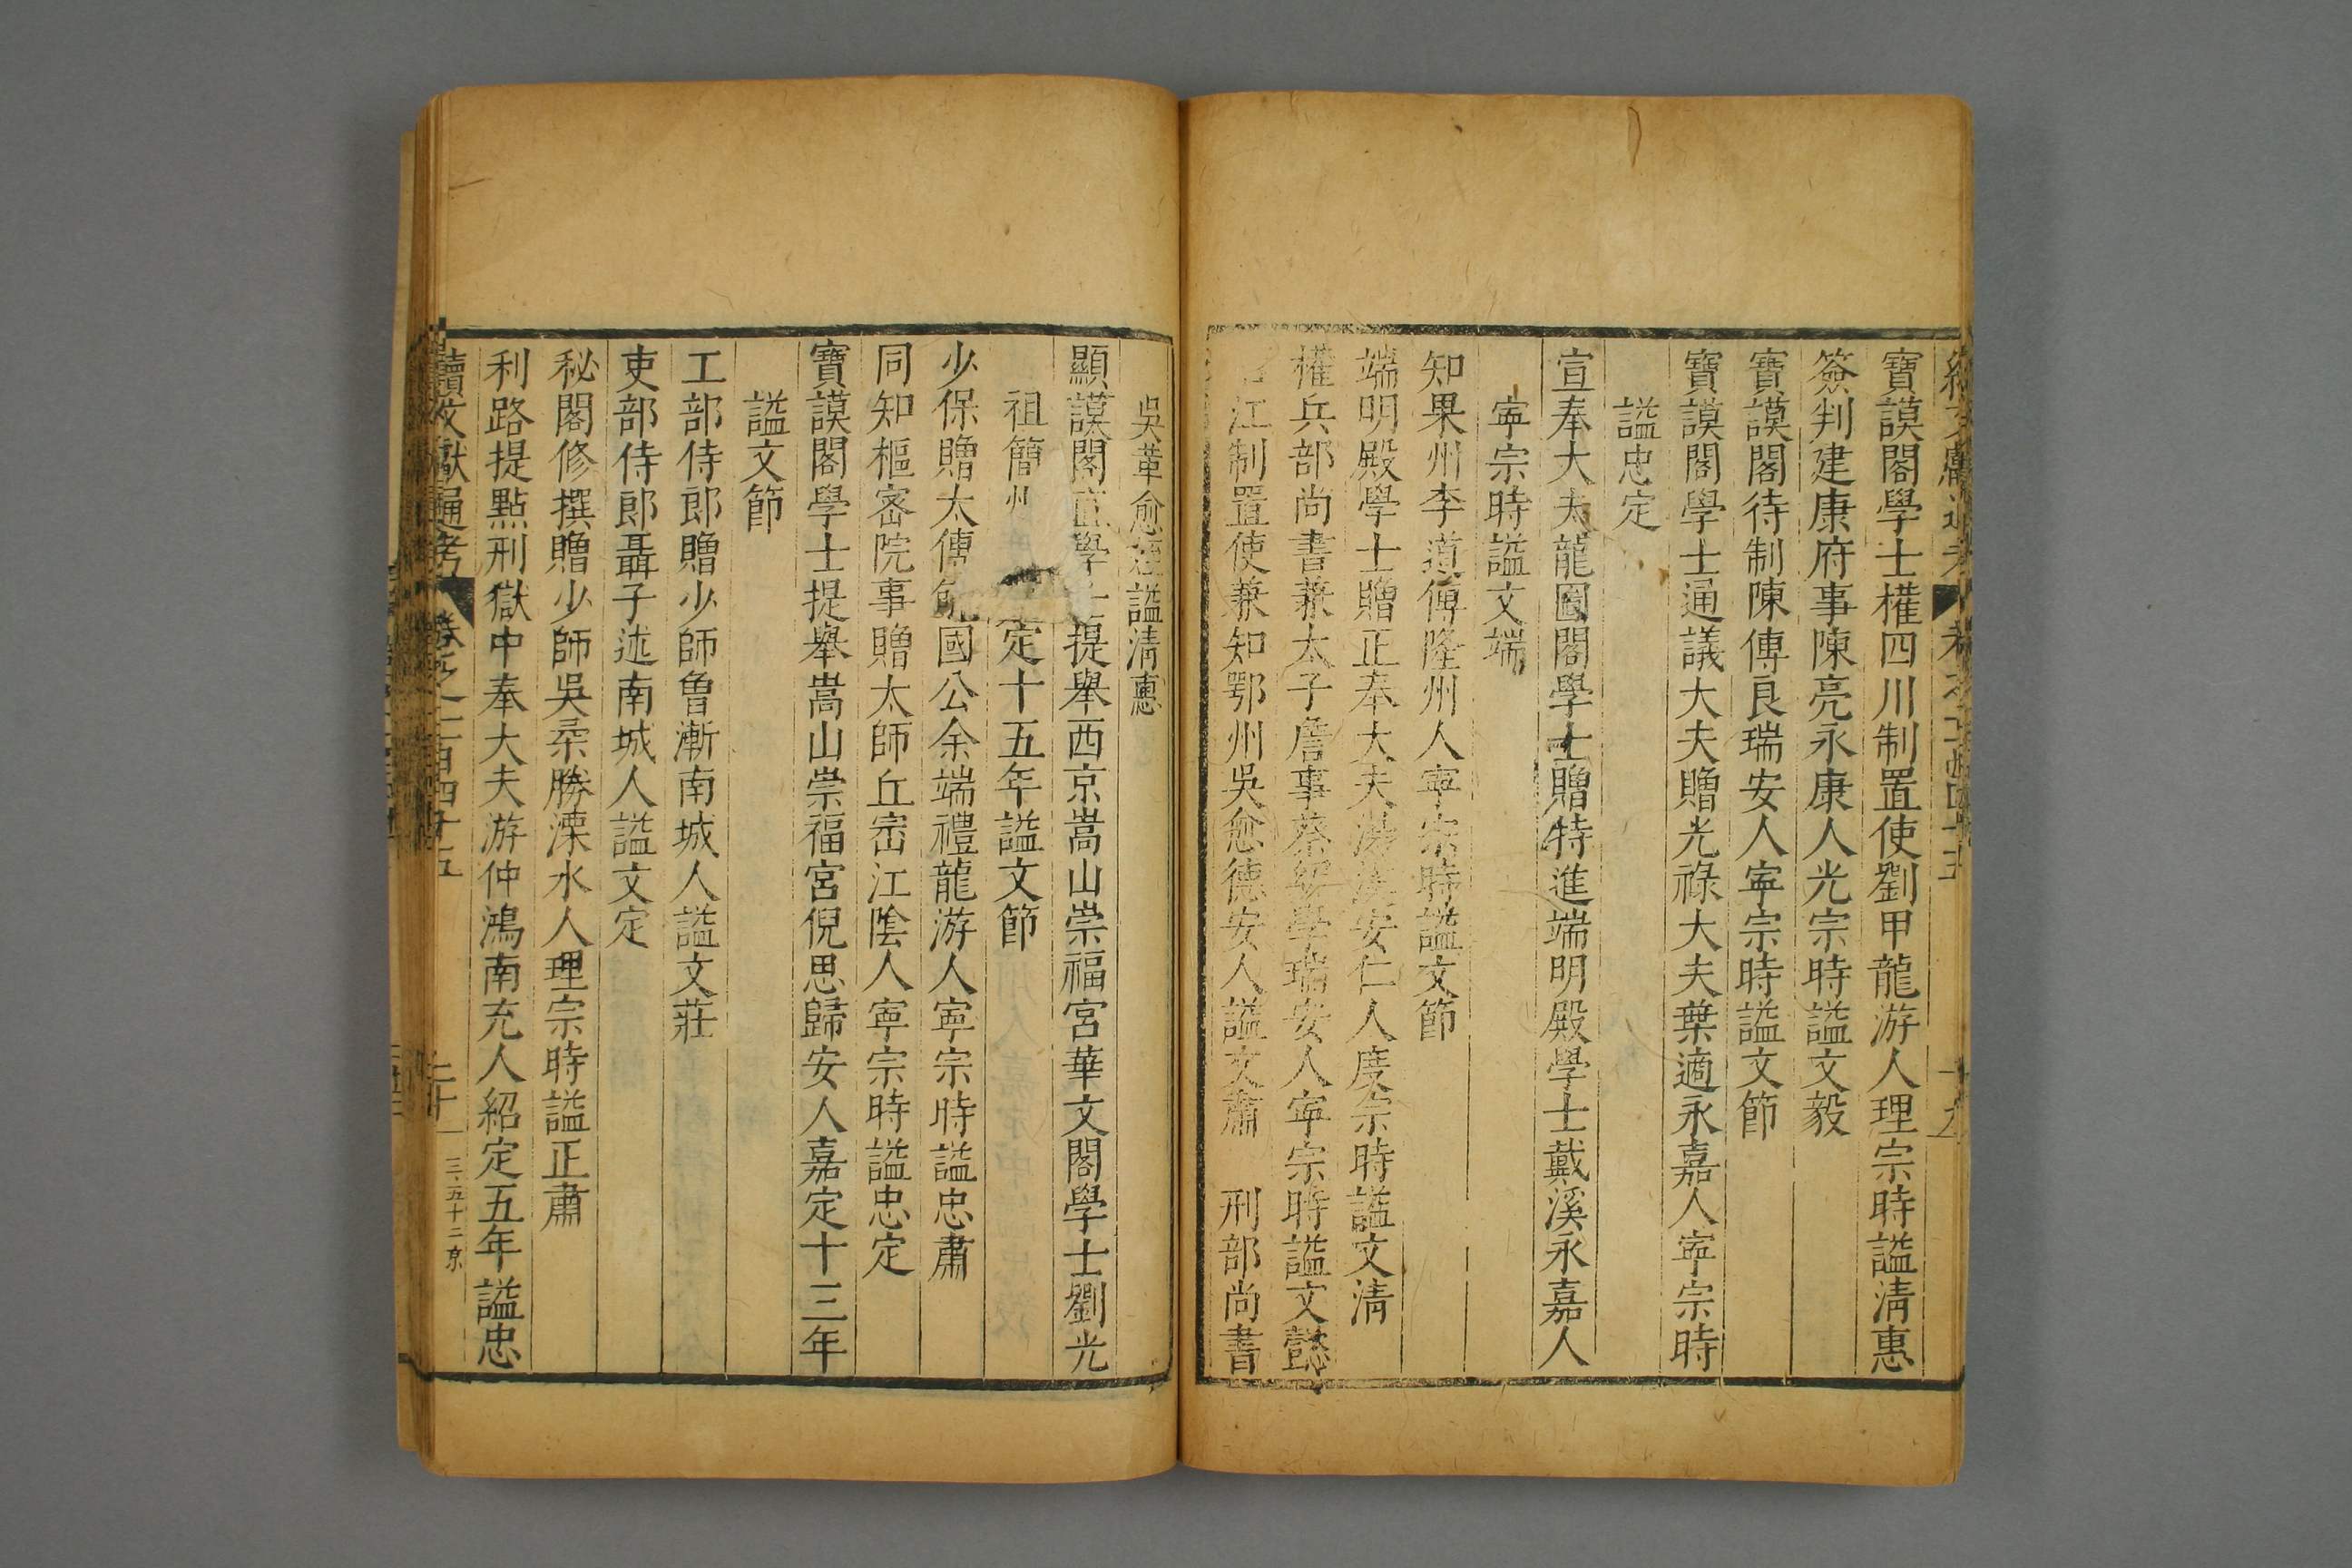 寶謨閣學士權四川制置使劉甲龍游人理宗時謚清惠
簽判建康府事陳亮永康人光宗時謚文毅
寶謨閣待制陳傅良瑞安人寧宗時謚文節
寶謨閣學士通議大夫贈光祿大夫葉適永嘉人寧宗時
謚忠定
宣奉大夫龍圖閣學士贈特進端明殿學士戴溪永嘉人
寧宗時謚文端
知果州李道傳隆州人寧宗時謚文節
端明殿學士贈正奉大夫湯漢安仁人度宗時謚文清
權兵部尚書兼太子詹事蔡幼學瑞安人寧宗時謚文懿
江制置使兼知鄂州吳愈德安人謚文肅 刑部尚書
吳革愈姪謚清惠
顯謨閣直學士提舉西京嵩山崇福宮華文閣學士劉光
祖簡州 定十五年謚文節
少保贈太傅 國公余端禮龍游人寧宗時謚忠肅
同知樞密院事贈太師丘崈江陰人寧宗時謚忠定
寶謨閣學士提舉嵩山崇福宮倪思歸安人嘉定十三年
謚文節
工部侍郎贈少師魯漸南城人謚文莊
吏部侍郎聶子述南城人謚文定
秘閣修撰贈少師吳柔勝溧水人理宗時謚正肅
利路提點刑獄中奉大夫游仲鴻南充人紹定五年謚忠
續文獻通考 卷之一百四十五 二十 三五十二京